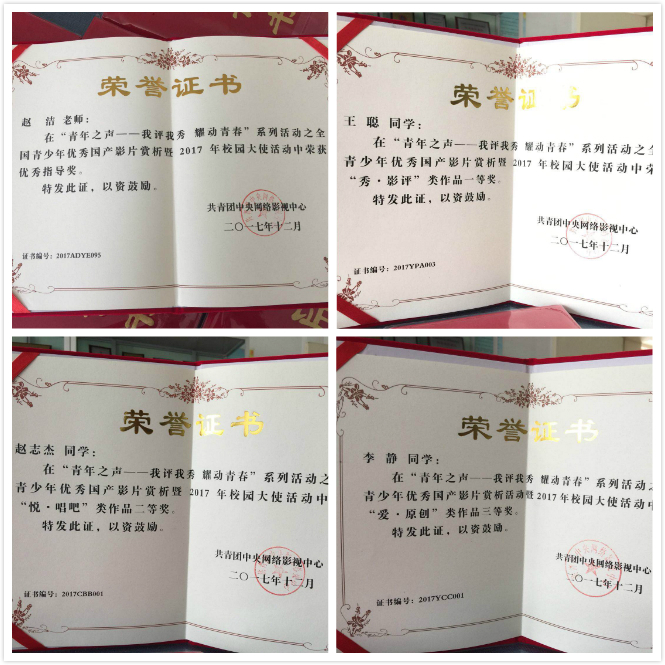 荣誉证书
赵 洁 老师：
在“青年之声——我评我秀 耀动青春”系列活动之全
国青少年优秀国产影片赏析暨 2017 年校园大使活动中荣获
优秀指导奖。
特发此证，以资鼓励。
共青团中央网络影视中心
二〇一七年十二月
证书编号：2017ADYE095
荣誉证书
王 聪 同学：
在“青年之声——我评我秀 耀动青春”系列活动之全
青少年优秀国产影片赏析暨 2017 年校园大使活动中荣
“秀·影评”类作品一等奖。
特发此证，以资鼓励。
共青团中央网络影视中心
二〇一七年十二月
证书编号：2017YPA003
荣誉证书
赵志杰 同学：
在“青年之声——我评我秀 耀动青春”系列活动之
青少年优秀国产影片赏析暨 2017 年校园大使活动中
“悦·唱吧”类作品二等奖。
特发此证，以资鼓励。
共青团中央网络影视中心
二〇一七年十二月
证书编号：2017CBB001
荣誉证书
李 静 同学：
在“青年之声——我评我秀 耀动青春”系列活动之
青少年优秀国产影片赏析活动暨 2017 年校园大使活动中
“爱·原创”类作品三等奖。
特发此证，以资鼓励。
共青团中央网络影视中心
二〇一七年十二月
证书编号：2017YCC001